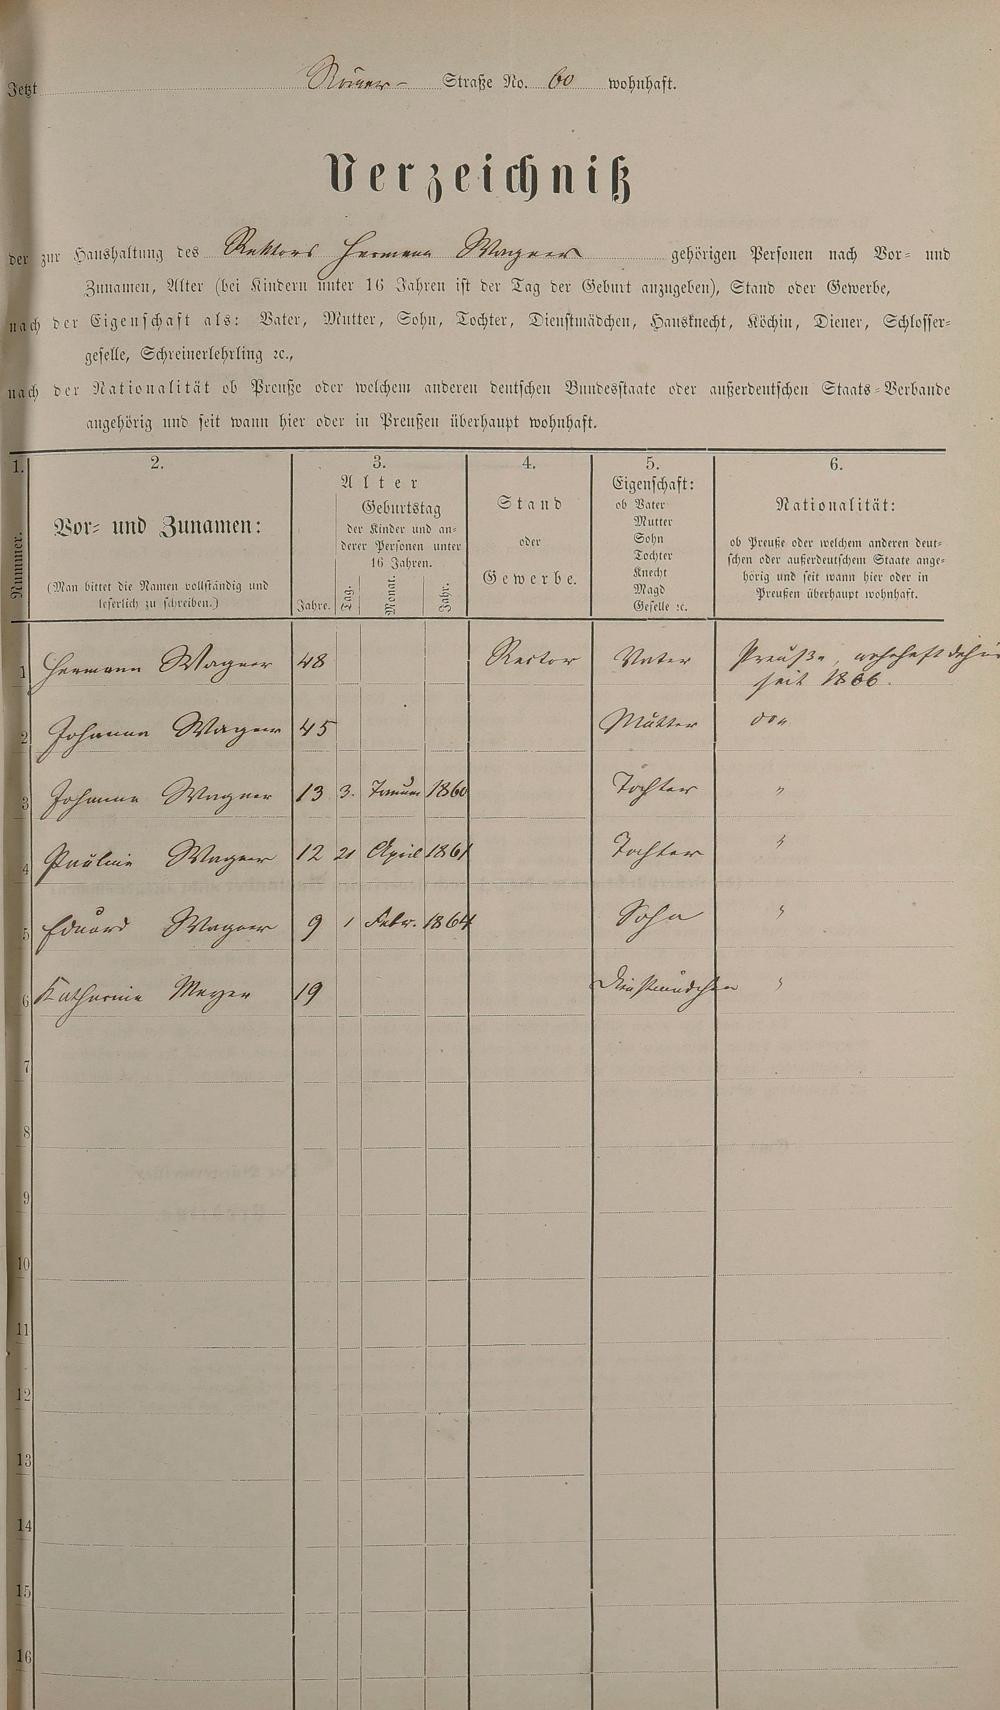 Jetzt Straße No. 60 wohnhaft.
Verzeichniß
der zur Haushaltung des Rektors Hermann Wagner gehörigen Personen nach Vor- und
Zunamen, Alter (bei Kindern unter 16 Jahren ist der Tag der Geburt anzugeben), Stand oder Gewerbe,
nach der Eigenschaft als: Vater, Mutter, Sohn, Tochter, Dienstmädchen, Hausknecht, Köchin, Diener, Schlosser-
geselle, Schreinerlehrling ꝛc.,
nach der Nationalität ob Preuße oder welchem anderen deutschen Bundesstaate oder außerdeutschen Staats-Verbande
angehörig und seit wann hier oder in Preußen überhaupt wohnhaft.
1. 2. 3. 4. 5. 6.
Nummer.
Vor- und Zunamen:
(Man bittet die Namen vollständig und
leserlich zu schreiben.)
Alter
Geburtstag
der Kinder und an-
derer Personen unter
16 Jahren.
Jahre. Tag. Monat. Jahr.
Stand
oder
Gewerbe.
Eigenschaft:
ob Vater
Mutter
Sohn
Tochter
Knecht
Magd
Geselle ꝛc.
Nationalität:
ob Preuße oder welchem anderen deut-
schen oder außerdeutschem Staate ange-
hörig und seit wann hier oder in
Preußen überhaupt wohnhaft.
1 Hermann Wagner 48 Rector Vater Preuße,
seit 1866.
2 Johanna Wagner 45 Mutter
3 Johanna Wagner 13 3. Januar 1860 Tochter "
4 Pauline Wagner 12 21 April 1861 Tochter "
5 Eduard Wagner 9 1 Febr. 1864 Sohn "
6 Katharina Meyer 19 Dienstmädchen "
7
8
9
10
11
12
13
14
15
16